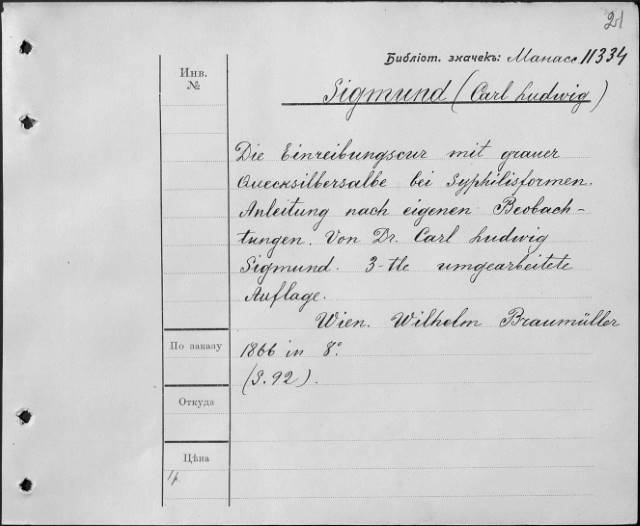 21
Библіот. значекъ: Манасс 11334
Инв.
№
Sigmund (Carl Ludwig)
Die Einreibungscur mit grauer
Quecksilbersalbe bei Syphilisformen.
Anleitung nach eigenen Beobach-
tungen. Von Dr. Carl Ludwig
Sigmund. 3-tte umgearbeitete
Auflage.
Wien. Wilhelm Braumüller
По заказу
1866 in 8°.
(S. 92).
Откуда
Цѣна